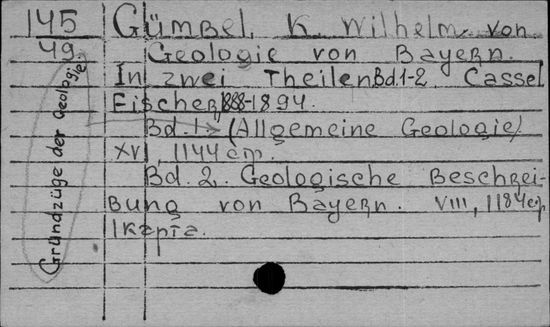 145
49
Gümbel, K. Wilhelm von
Geologie von Bayern.
In zwei Theilen Bd.1-2. Cassel
Fischer, 1888-1894.
Bd. 1. (Allgemeine Geologie)
XVI, 1144 стр.
Bd. 2. Geologische Beschrei-
bung von Bayern. VIII, 1184 стр.
1 карта.
Grundzüge der Geologie.